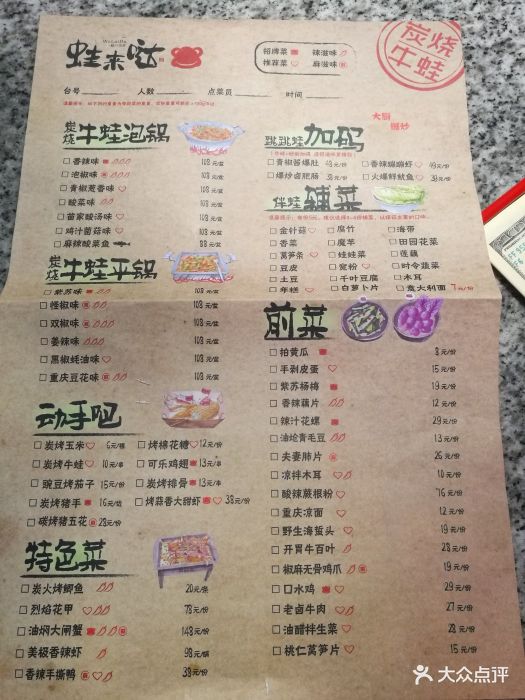 蛙来哒
招牌菜 辣滋味
推荐菜 麻滋味
炭烧牛蛙
台号 人数 点菜员 时间
炭烧牛蛙泡锅
香辣味 108元/盆
泡椒味 108元/盆
青椒葱香味 108元/盆
酸菜味 108元/盆
苗家酸汤味 108元/盆
鸡汁菌菇味 108元/盆
麻辣酸菜鱼 88元/盆
炭烧牛蛙平锅
紫苏味 108元/盆
怪椒味 108元/盆
双椒味 108元/盆
姜辣味 108元/盆
黑椒蚝油味 108元/盆
重庆豆花味 108元/盆
动手吧
炭烤玉米 6元/根 烤棉花糖 12元/份
炭烤牛蛙 10元/串 可乐鸡翅 13元/串
豌豆烤茄子 15元/份 炭烤排骨 13元/串
炭烤猪手 16元/份 烤蒜香大甜虾 38元/份
碳烤猪五花 28元/份
特色菜
炭火烤鲫鱼 20元/条
烈焰花甲 78元/份
油焖大闸蟹 148元/份
美极香辣虾 98元/锅
香辣手撕鸭 38元/份
跳跳蛙加码
大厨爆炒
青椒酱爆肚 48元/份 香辣蝴蝴虾 49元/份
爆炒卤肥肠 38元/份 火爆鲜鱿鱼 38元/份
伴蛙辅菜
金针菇 腐竹 海带
香菜 魔芋 田园花菜
莴笋条 娃娃菜 莲藕
豆皮 宽粉 时令蔬菜
土豆 千叶豆腐 木耳
年糕 白萝卜片 意大利面 7元/份
前菜
拍黄瓜 8元/份
手剥皮蛋 15元/份
紫苏杨梅 19元/份
香辣藕片 12元/份
辣汁花螺 29元/份
油烩青毛豆 13元/份
夫妻肺片 26元/份
凉拌木耳 10元/份
酸辣蕨根粉 16元/份
重庆凉面 12元/份
野生海蜇头 19元/份
开胃牛百叶 28元/份
椒麻无骨鸡爪 19元/份
口水鸡 29元/份
老卤牛肉 27元/份
油醋拌生菜 28元/份
桃仁莴笋片 15元/份
大众点评